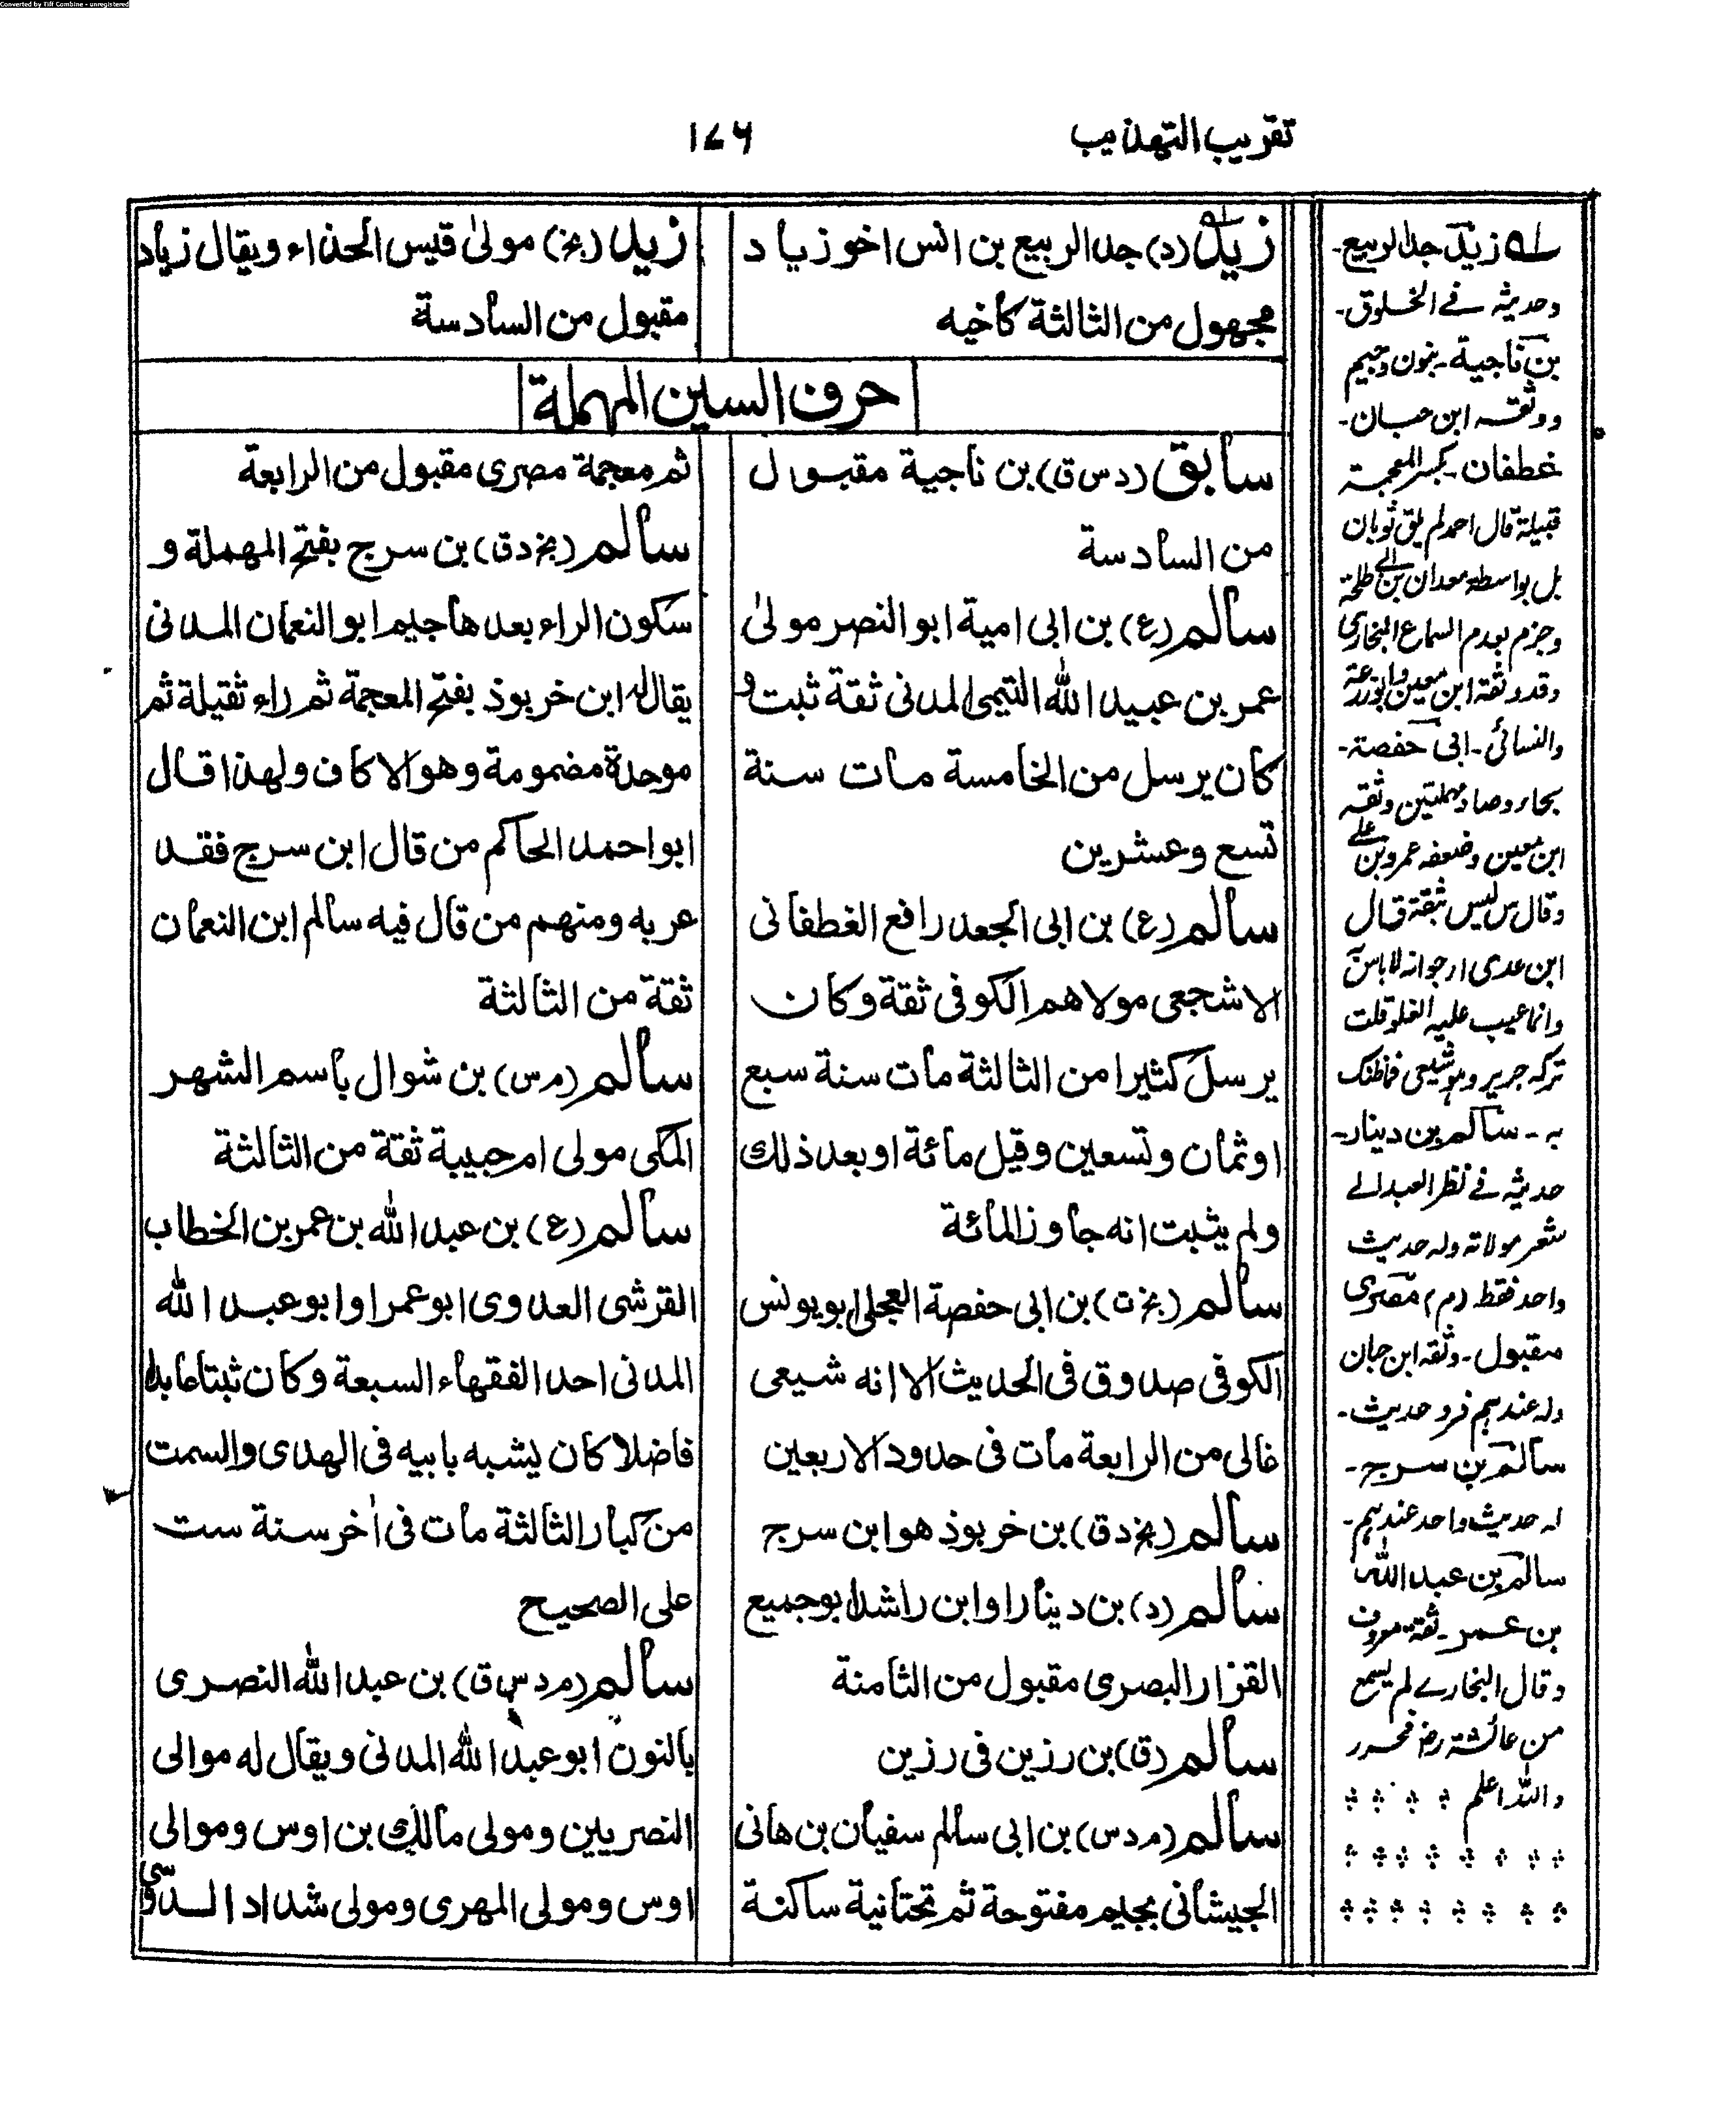 Converted by Tiff Combine - unregistered
تقريب التهذيب
١٧٦
زيد (د) جد الربيع بن انس اخو زياد
مجهول من الثالثة كاخيه
زيد (بخ) مولىٰ قيس الحذاء ويقال زياد
مقبول من السادسة
حرف السين المهملة
سابق (د س ق) بن ناجية مقبول
من السادسة
سالم (ع) بن ابى امية ابو النضر مولىٰ
عمر بن عبيد الله التيمى المدنى ثقة ثبت و
كان يرسل من الخامسة مات سنة
تسع وعشرين
سالم (ع) بن ابى الجعد رافع الغطفانى
الاشجعى مولاهم الكوفى ثقة وكان
يرسل كثيرا من الثالثة مات سنة سبع
او ثمان وتسعين وقيل مائة او بعد ذلك
ولم يثبت انه جاوز المائة
سالم (بخ ت) بن ابى حفصة العجلى ابو يونس
الكوفى صدوق فى الحديث الا انه شيعى
غالى من الرابعة مات فى حدود الاربعين
سالم (بخ د ق) بن خربوذ هو ابن سرج
سالم (د) بن دينار او ابن راشد ابو جميع
القزاز البصرى مقبول من الثامنة
سالم (ق) بن رزين فى رزين
سالم (م د س) بن ابى سالم سفيان بن هانى
الجيشانى بجيم مفتوحة ثم تحتانية ساكنة
ثم معجمة مصرى مقبول من الرابعة
سالم (بخ د ق) بن سرج بفتح المهملة و
سكون الراء بعدها جيم ابو النعمان المدنى
يقال له ابن خربوذ بفتح المعجمة ثم راء ثقيلة ثم
موحدة مضمومة وهو الاكاف ولهذا قال
ابو احمد الحاكم من قال ابن سرج فقد
عربه ومنهم من قال فيه سالم ابن النعمان
ثقة من الثالثة
سالم (م س) بن شوال باسم الشهر
المكى مولى ام حبيبة ثقة من الثالثة
سالم (ع) بن عبد الله بن عمر بن الخطاب
القرشى العدوى ابو عمر او ابو عبد الله
المدنى احد الفقهاء السبعة وكان ثبتا عابدا
فاضلا كان يشبه بابيه فى الهدى والسمت
من كبار الثالثة مات فى اٰخر سنة ست
على الصحيح
سالم (م د س ق) بن عبد الله النصرى
بالنون ابو عبد الله المدنى ويقال له موالى
النصريين ومولى مالك بن اوس وموالى
اوس ومولى المهرى ومولى شداد الدوسى
له زيد جد الربيع -
وحديثه فے الخلوق -
بن ناجية - بنون وجيم
ووثقه ابن حبان -
غطفان - بكسر المعجمة
قبيلة قال احمد لم يلق ثوبان
بل بواسطة معدان بن ابى طلحة
وجزم بعدم السماع البخارى
وقد وثقه ابن معين وابو زرعة
والنسائى - ابى حفصة -
بحاء وصاد مهملتين وثقه
ابن معين وضعفه عمرو بن على
وقال س ليس بثقة قال
ابن عدى ارجو انه لا باس به
وانما عيب عليه الغلو قلت
تركه جرير وهو شيعى فما ظنك
به - سالم بن دينار -
حديثه فے نظر العبد الے
شعر مولاته وله حديث
واحد فقط (م) مصرى
مقبول - وثقه ابن حبان
وله عندهم فرد حديث -
سالم بن سرج -
له حديث واحد عندهم -
سالم بن عبد الله
بن عمر - ثقة معروف
وقال البخارے لم يسمع
من عائشة رض فحرر
والله اعلم